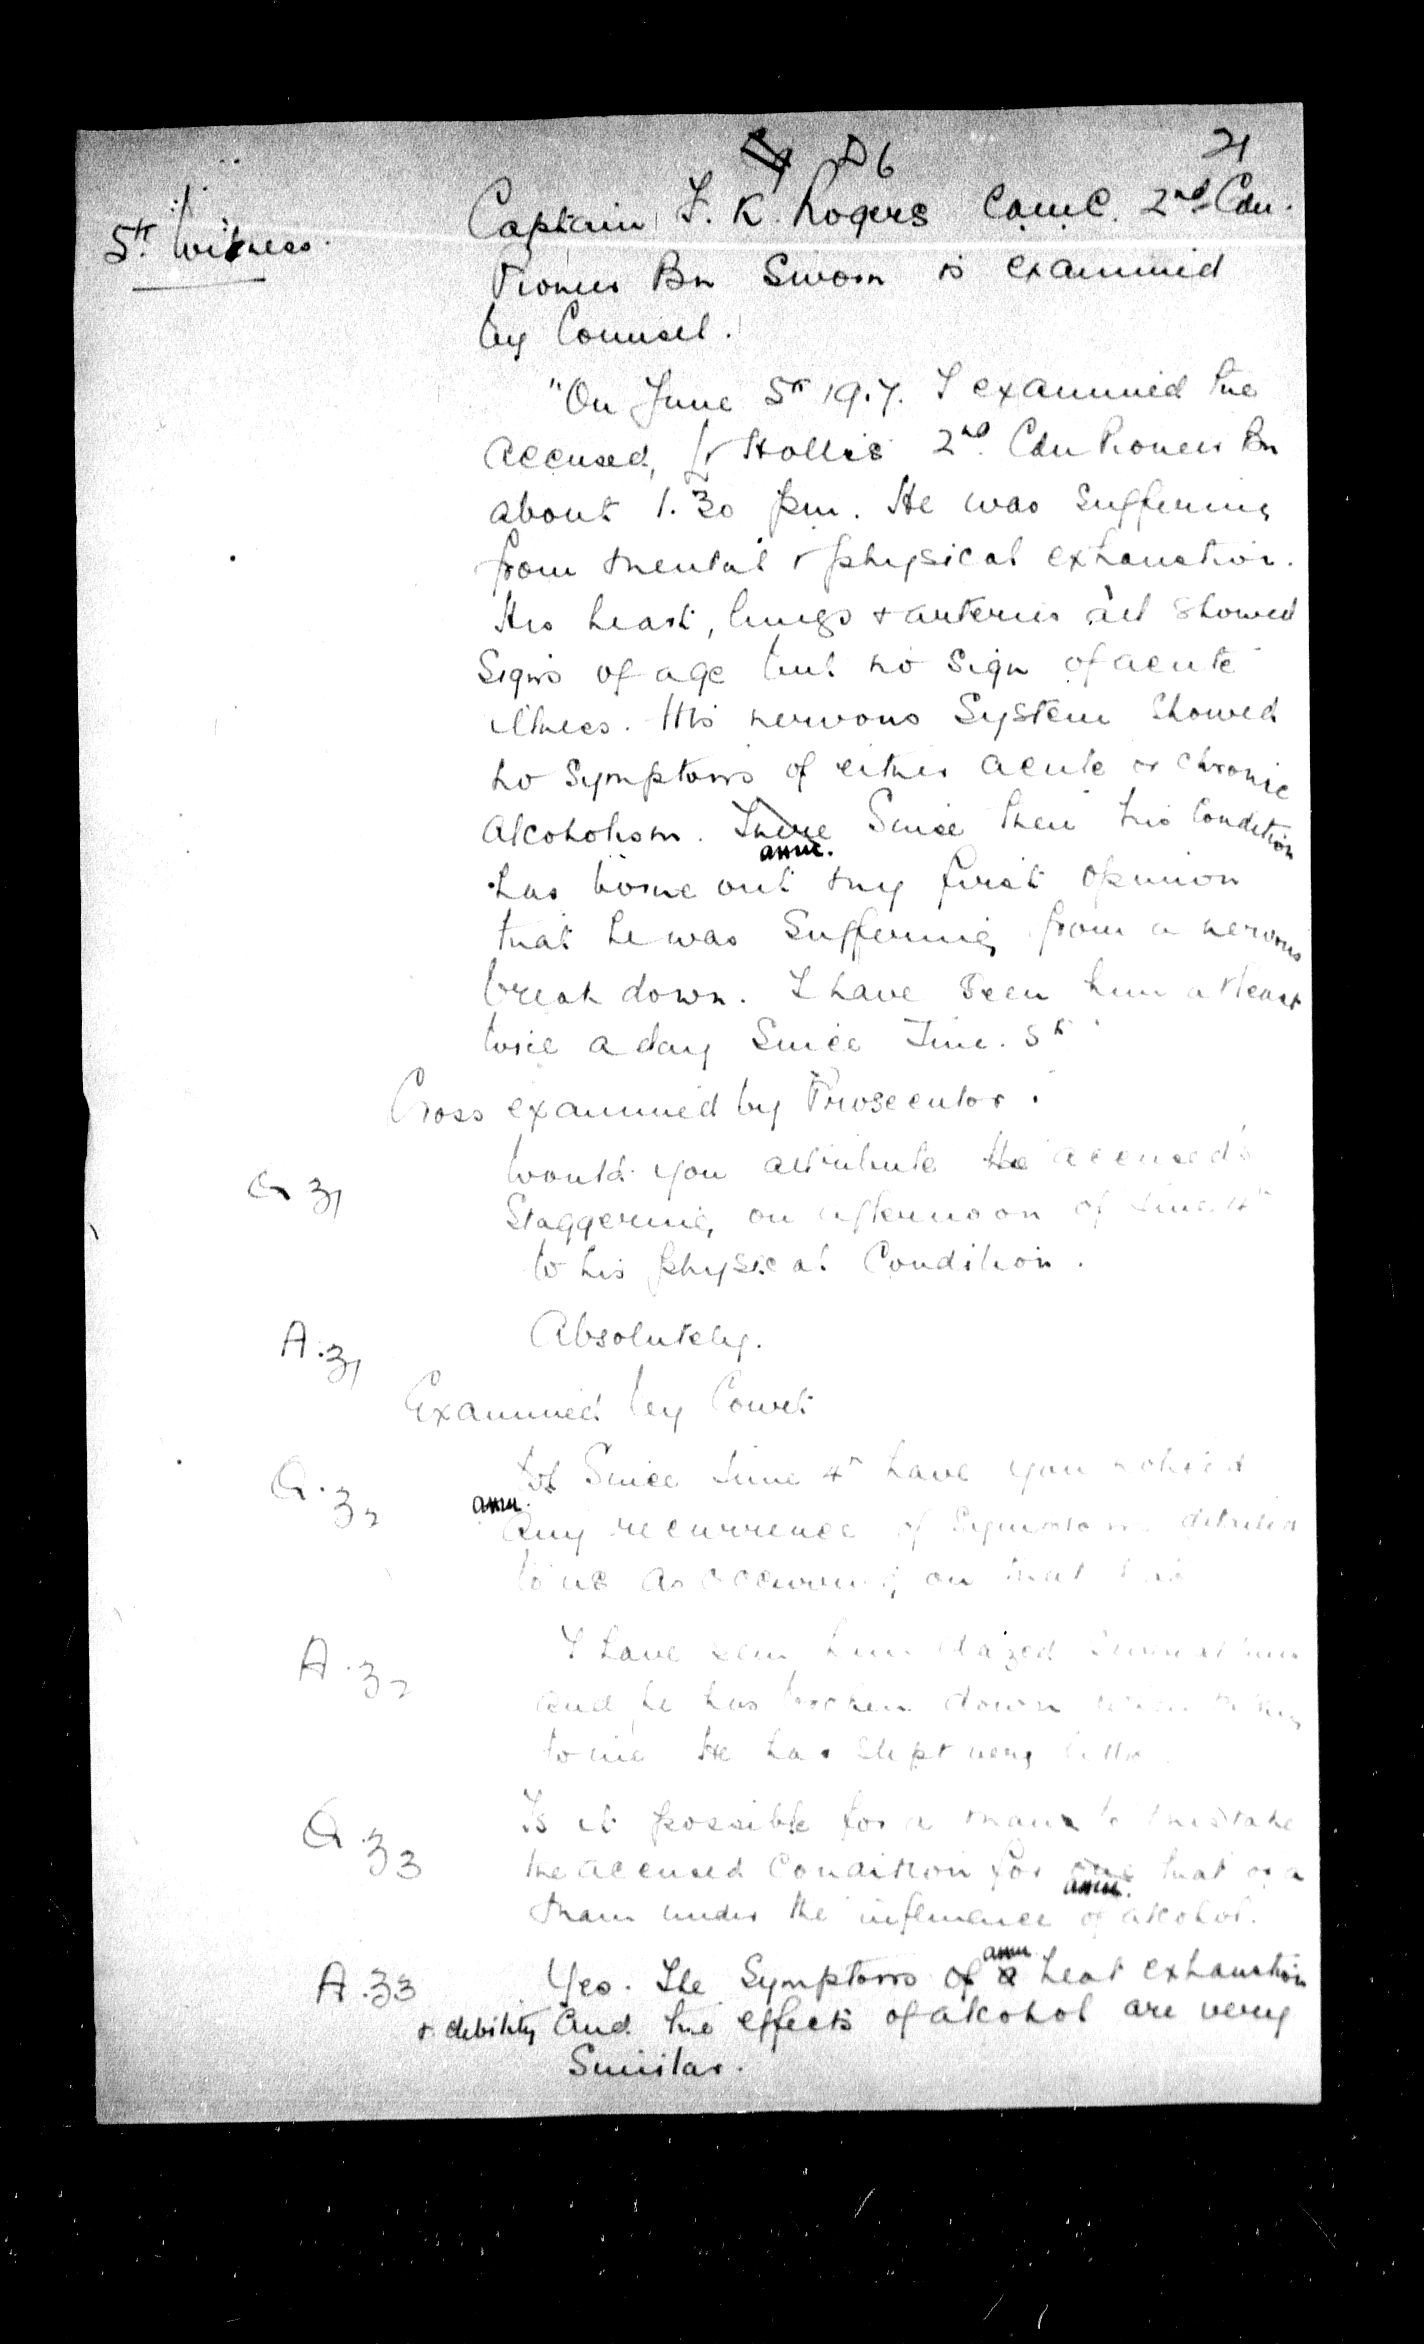 D6 21
5th Witness.
Captain F. K. Rogers C.A.M.C. 2nd Cdn.
Pioneer Bn Sworn is examined
by Counsel.
"On June 5th 1917. I examined the
accused, Hollis 2nd. Cdn Pioneer Bn
about 1.30 pm. He was suffering
from mental & physical exhaustion.
His heart, lungs & arteries all showed
signs of age but no sign of acute
illness. His nervous system showed
no symptoms of either acute or chronic
alcoholism. There Since then his condition
has borne out my first opinion
that he was suffering from a nervous
break down. I have seen him at least
twice a day since June. 5th
Cross examined by Prosecutor.
Q 31 Would you attribute the accused's
staggering, on afternoon of June 4th
to his physical condition.
A.31 Absolutely.
Examined by Court
Q.32 Since June 4th have you noticed
any recurrence of symptoms detailed
to us as occurring on that
A.32 I have seen him dazed several times
and he has broken down when talking
to me He has slept very little.
Q.33 Is it possible for a man to mistake
the accused condition for that of a
man under the influence of alcohol.
A.33 Yes. The symptoms of heat exhaustion
& debility and the effects of alcohol are very
similar.